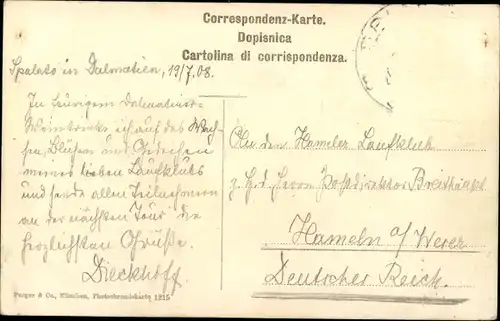 Correspondenz-Karte.
Dopisnica
Cartolina di corrispondenza.
Spalato in Dalmatien, 19/7.08.
In feurigem Dalmatiner-
Wein trinke ich auf das Wach-
sen, Blühen und Gedeihen
meines lieben Laufklubs
und sende allen Teilnehmern
an der nächsten Tour die
herzlichsten Grüße.
Dieckhoff.
An den Hamelner Laufklub
z. Hd. Herrn Postdirektor Breithaupt
Hameln a/Weser
Deutsches Reich.
Purger & Co., München, Photochromiekarte 1215